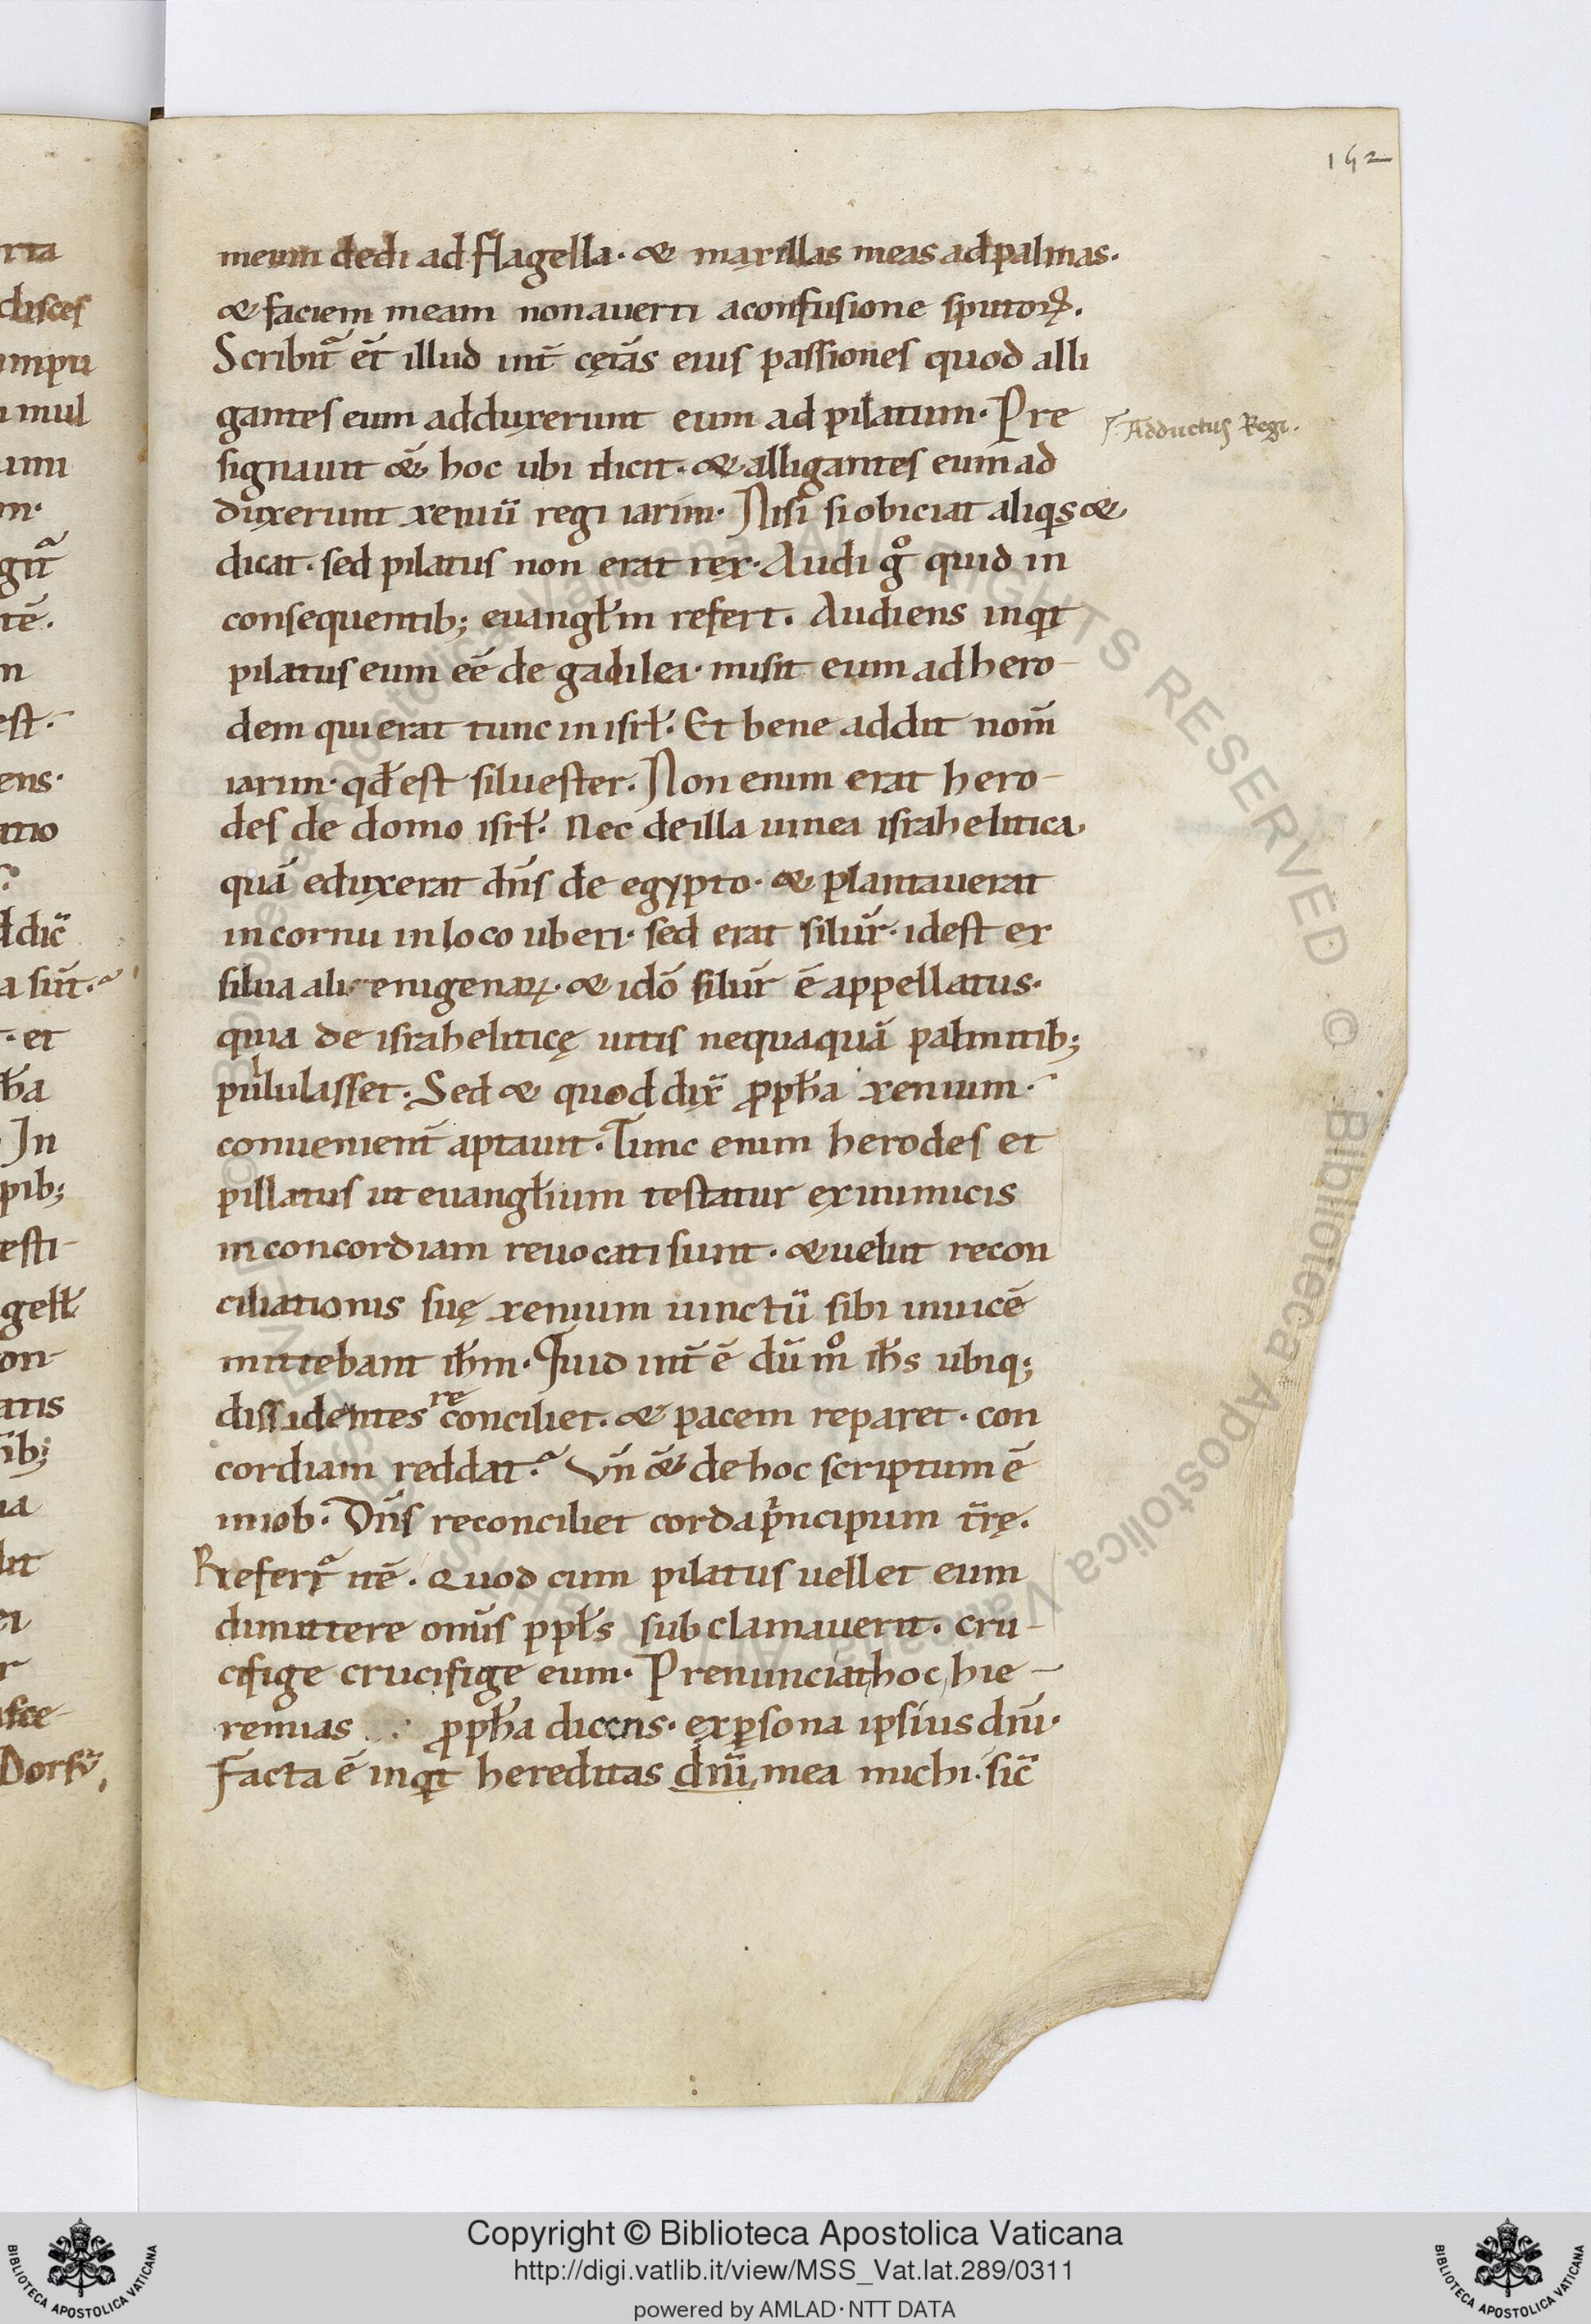 152
meum dedi ad flagella· & maxillas meas ad palmas·
& faciem meam non auerti a confusione sputoꝝ.
Scribit᷑ et̄ illud int̄ cęt̄as eius passiones quod alli
gantes eum adduxerunt eum ad pilatum· Pre
ſ· Adductus Regi.
signauit &̄ hoc ubi dicit· & alligantes eum ad
duxerunt xeniū regi iarim· Nisi si obiciat aliqͥs &
dicat· sed pilatus non erat rex· Audi gͦ quid in
consequentib; euangłm refert. Audiens inqͥt
pilatus eum eē de galilea· misit eum ad hero-
dem qui erat tunc in isrł· Et bene addit nom̄
iarim· qđ est siluester. Non enim erat hero-
des de domo isrł· Nec de illa uinea israhelitica
quā eduxerat dn̄s de egypto· & plantauerat
in cornu in loco uberi· sed erat silur̄· id est ex
silua ali enigenaꝝ· & idō silur̄ ē appellatus·
quia de israheliticę uitis nequaquā palmitib;
pullulasset· Sed & quod dix̄ ꝓph̄a xenium·
conuenient̄ aptauit· Tunc enim herodes et
pillatus ut euangłium testatur ex inimicis
in concordiam reuocati sunt· & uelut recon
ciliationis suę xenium uinctū sibi inuicē
mittebant ih̄m· Quid int̄ ē dūmͦ ih̄s ubiq;
dissidentes reconciliet· & pacem reparet· con
cordiam reddat· Vn̄ &̄ de hoc scriptum ē
in iob· Dn̄s reconciliet corda pͥncipum t̄rę.
Refert᷑ itē· Quod cum pilatus uellet eum
dimittere om̄is ppłs sub clamauerit· cru-
cifige crucifige eum· Prenunciat hoc hie-
remias ꝓph̄a dicens· ex ꝑsona ipsius dn̄i·
Facta ē inqͥt hereditas dn̄i mea michi· sic̄
Copyright © Biblioteca Apostolica Vaticana
http://digi.vatlib.it/view/MSS_Vat.lat.289/0311
powered by AMLAD·NTT DATA
BIBLIOTECA APOSTOLICA VATICANA
BIBLIOTECA APOSTOLICA VATICANA